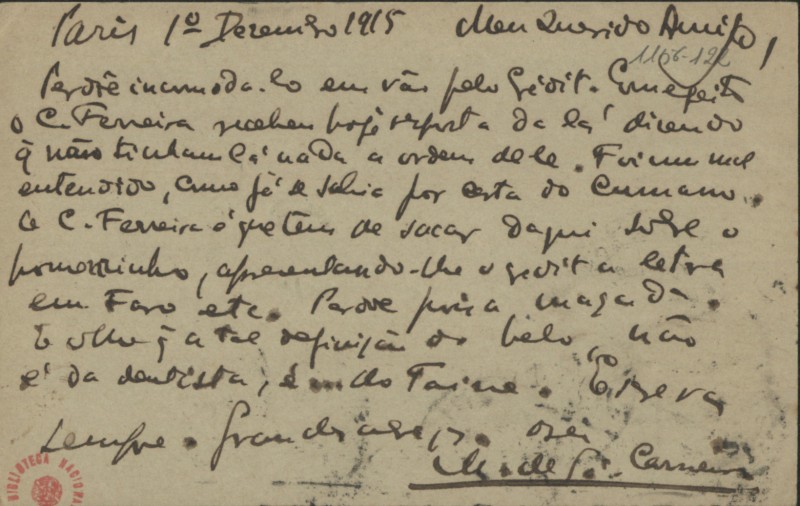 Paris 1º Dezembro 1915 Meu Querido Amigo,
1156-122
Perdoe incomoda-lo em vão pelo Crédit. Com efeito
o C. Ferreira recebeu hoje resposta da lá dizendo
q̃ não tinham lá nada a ordem dele. Foi um mal
entendido, como já se sabia por carta do
O C. Ferreira é que tem de sacar daqui sobre o
apresentando-lhe o Crédit a letra
em Faro etc. Perdoe pois a maçada.
E olhe q̃ a tal definição do belo, não
é da dentista, é do Taine. Escreva
sempre. Grande abraço. o seu
M. de Sá-Carneiro
BIBLIOTECA NACIONAL